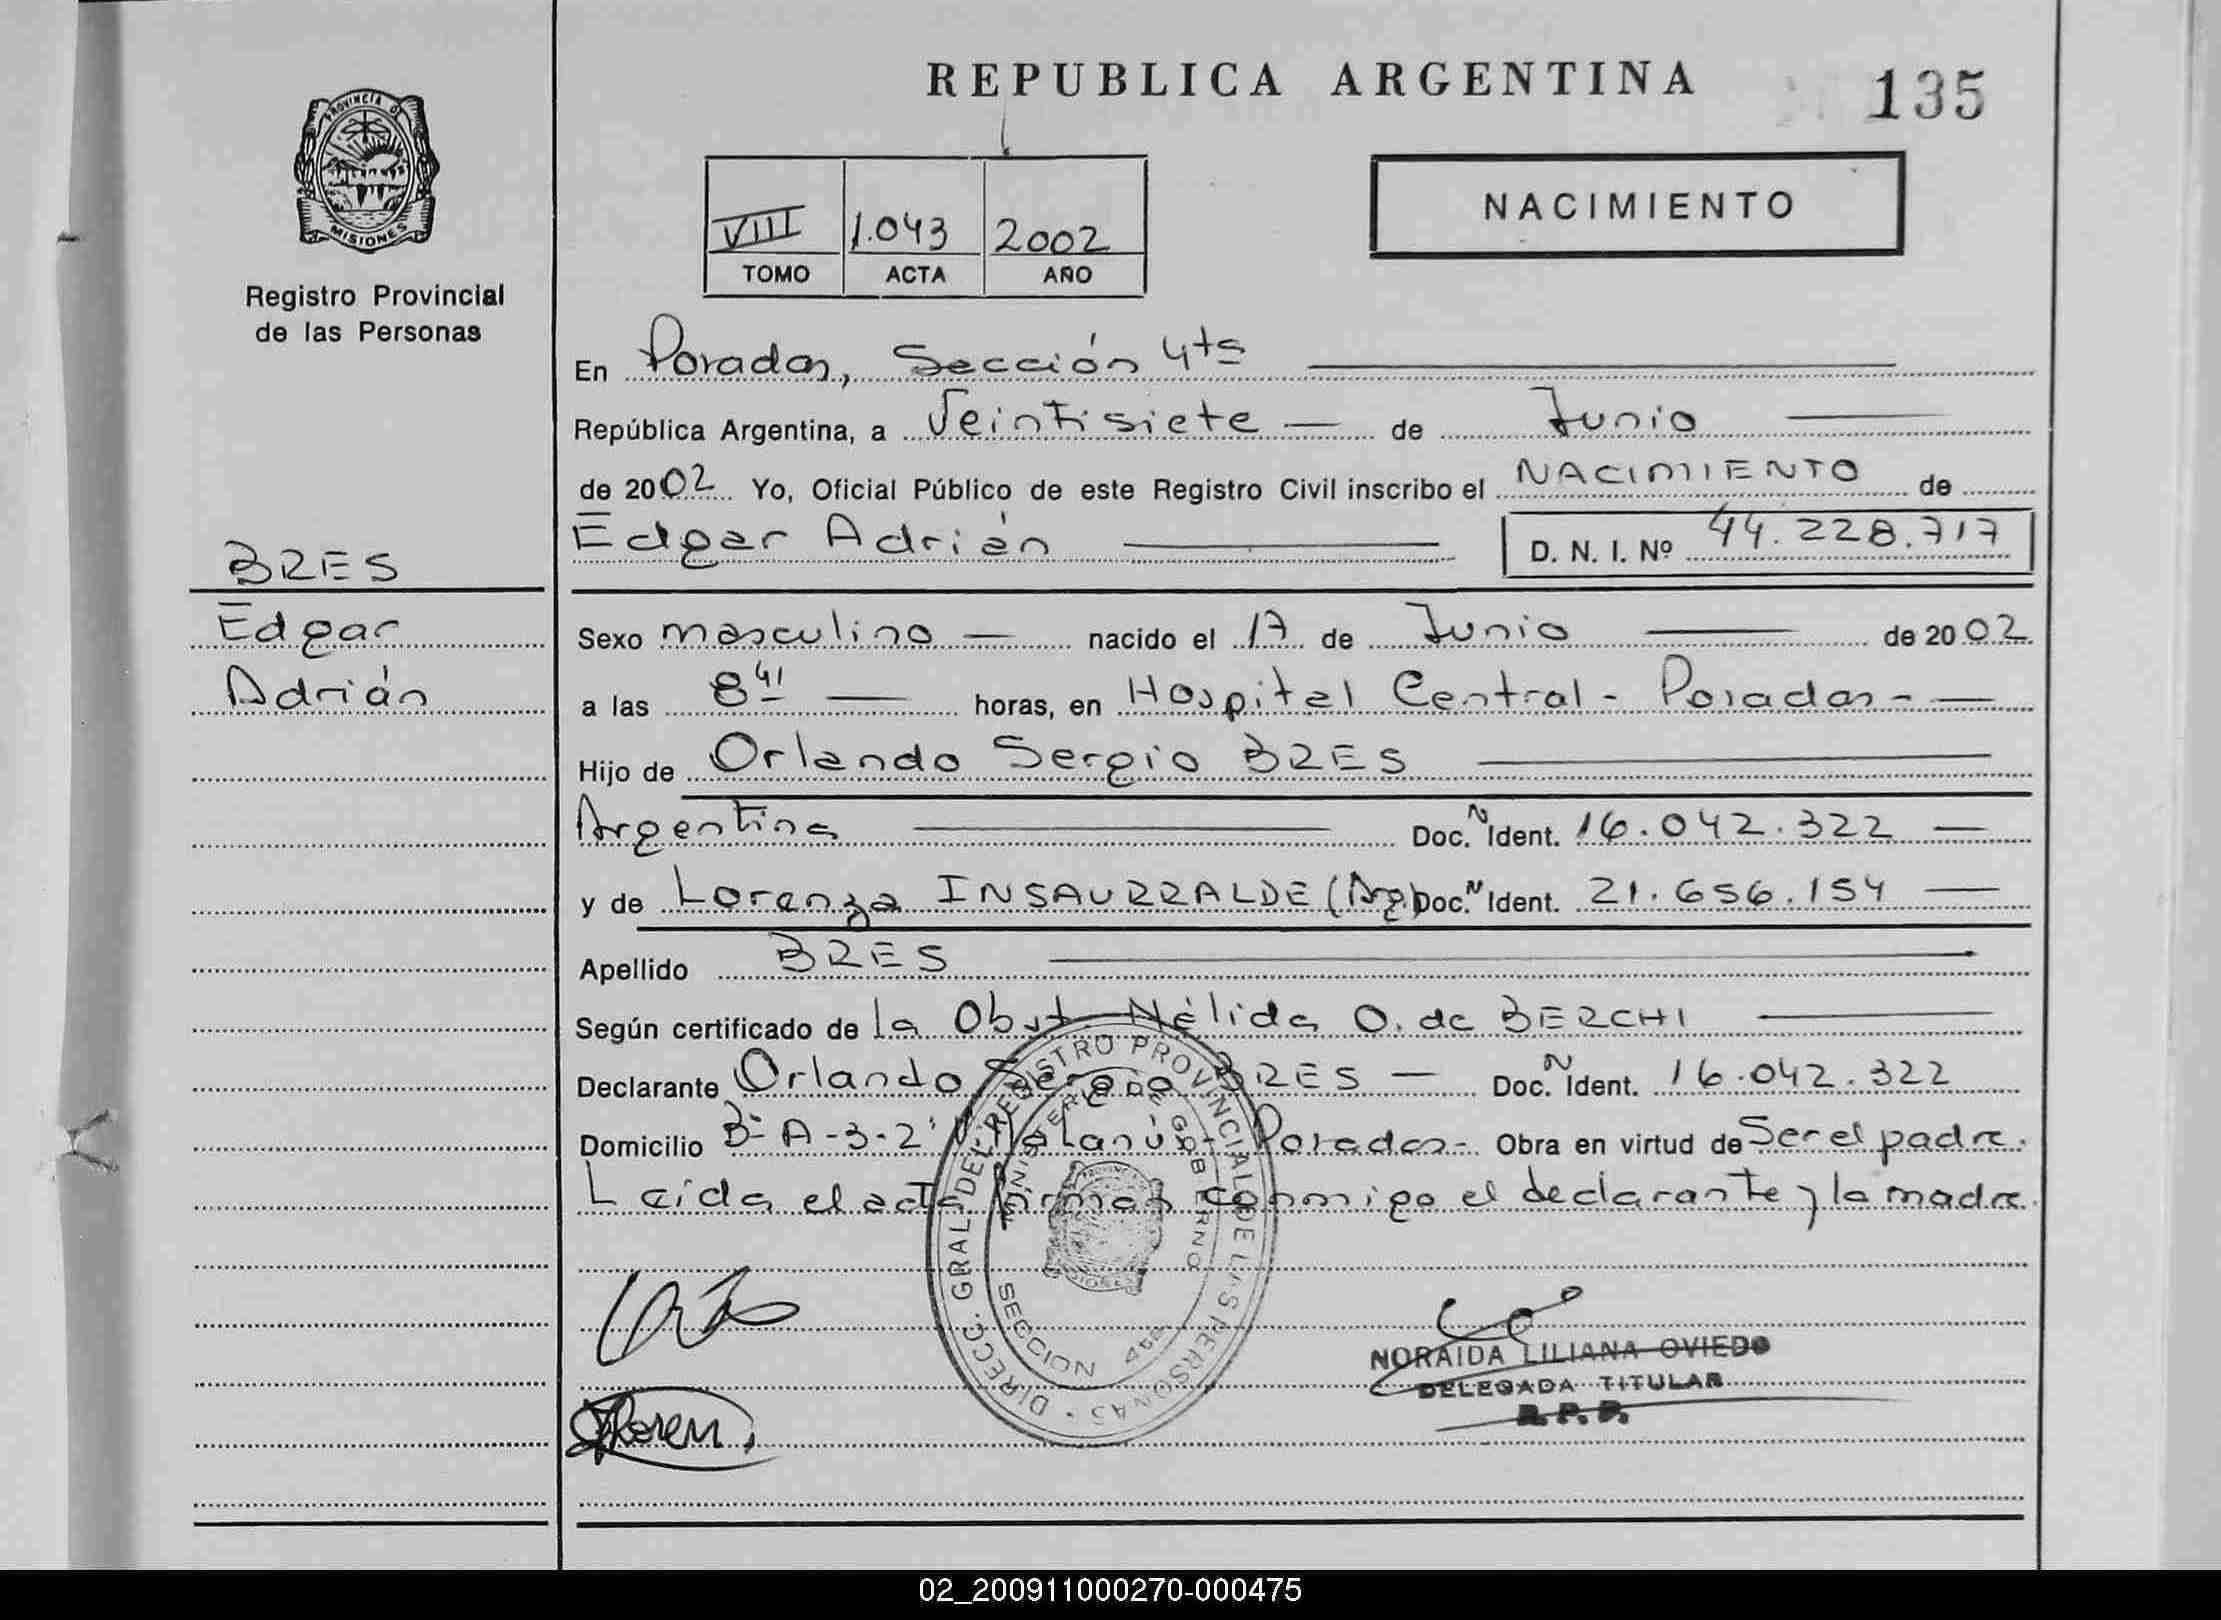 REPUBLICA ARGENTINA
135
PROVINCIA DE
MISIONES
Registro Provincial
de las Personas
VIII 1.043 2002
TOMO ACTA AÑO
NACIMIENTO
En Posadas, Sección 4ta
República Argentina, a Veintisiete de Junio
de 2002 Yo, Oficial Público de este Registro Civil inscribo el NACIMIENTO de
Edgar Adrián D. N. I. Nº 44.228.717
BRES
Edgar
Adrián
Sexo masculino nacido el 17 de Junio de 2002
a las 8 41 horas, en Hospital Central - Posadas -
Hijo de Orlando Sergio BRES
Argentina Doc. N Ident. 16.042.322
y de Lorenza INSAURRALDE (Arg) Doc. N Ident. 21.656.154
Apellido BRES
Según certificado de la Obst. Nélida O. de BERCHI
Declarante Orlando Sergio BRES Doc. N Ident. 16.042.322
Domicilio Bº A-3-2' Villa Lanús - Posadas - Obra en virtud de Ser el padre.
Leída el acta firman conmigo el declarante y la madre.
DIRECC. GRAL. DEL REGISTRO PROVINCIAL DE LAS PERSONAS
MINISTERIO DE GOBIERNO
SECCION 4ta.
Loren
NORAIDA LILIANA OVIEDO
DELEGADA TITULAR
R. P. P.
02_200911000270-000475